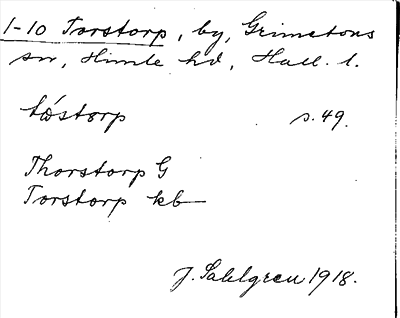 1-10 Torstorp, by, Grimetons
sn, Himle hd, Hall. l.
tóstorp s. 49.
Thorstorp G
Torstorp kb
J. Sahlgren 1918.